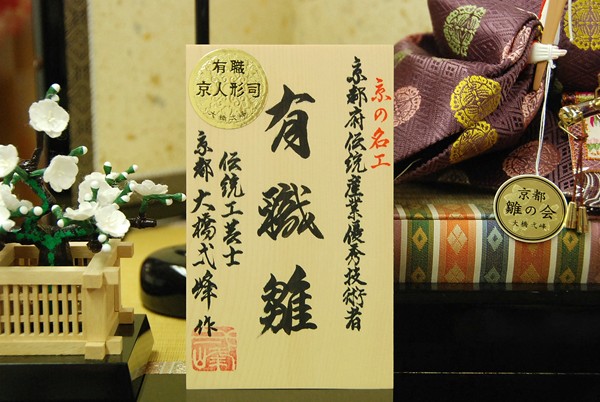 京の名工
京都府伝統産業優秀技術者
有職雛
伝統工芸士
京都 大橋弌峰 作
有職
京人形司
大橋弌峰
京都
雛の会
大橋弌峰